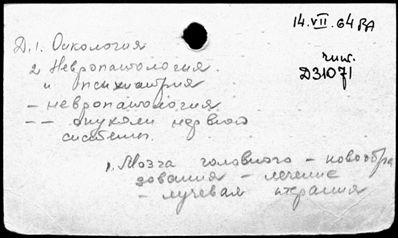 14.VII.64 РА
Д. 1. Онкология
2 Невропатология
и психиатрия
чит.
D31071
- невропатология
-- опухоли нервной
системы.
1. Мозга головного - новообра
зования - лечение
- лучевая терапия